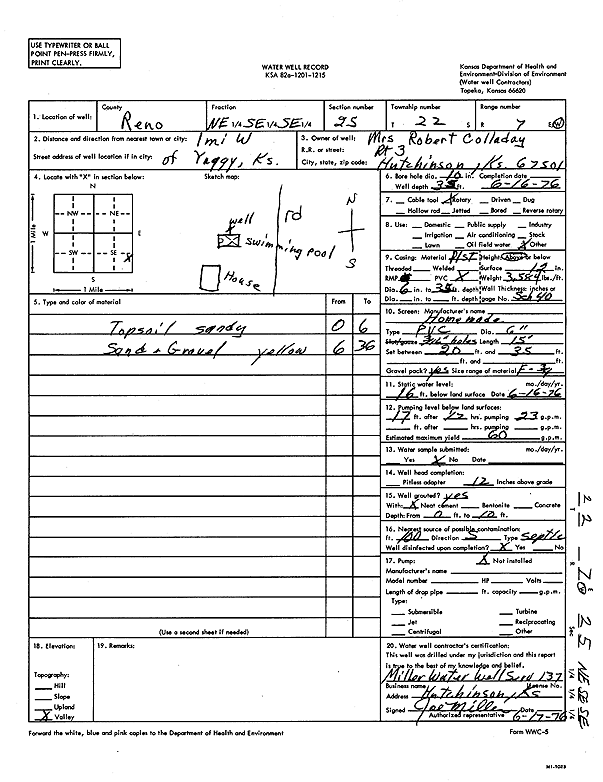 USE TYPEWRITER OR BALL
POINT PEN-PRESS FIRMLY,
PRINT CLEARLY.
WATER WELL RECORD
KSA 82a-1201-1215
Kansas Department of Health and
Environment-Division of Environment
(Water well Contractors)
Topeka, Kansas 66620
1. Location of well:
County
Reno
Fraction
NE 1/4 SE 1/4 SE 1/4
Section number
25
Township number
T 22 S
Range number
R 7 E/W
2. Distance and direction from nearest town or city: 1 mi W
Street address of well location if in city: of Yaggy, Ks.
3. Owner of well: Mrs Robert Colladay
R.R. or street: Rt 3
City, state, zip code: Hutchinson, Ks. 67501
4. Locate with "X" in section below:
N
NW NE
W E
SW SE X
S
1 Mile
1 Mile
Sketch map:
well
rd
swimming pool
House
N
S
5. Type and color of material From To
Topsoil sandy 0 6
Sand + Gravel yellow 6 36
(Use a second sheet if needed)
6. Bore hole dia. 10 in. Completion date
Well depth 35 ft. 6-16-76
7. Cable tool X Rotary Driven Dug
Hollow rod Jetted Bored Reverse rotary
8. Use: Domestic Public supply Industry
Irrigation Air conditioning Stock
Lawn Oil field water X Other
9. Casing: Material PlST Height: Above or below
Threaded Welded Surface 12 in.
RMP PVC X Weight lbs./ft.
Dia. 6 in. to 35 ft. depth Wall Thickness: inches or
Dia. in. to ft. depth gage No. Sch 40
10. Screen: Manufacturer's name
Homemade
Type PVC Dia. 6"
Slot/gauze holes Length 15'
Set between 20 ft. and 35 ft.
ft. and ft.
Gravel pack? yes Size range of material
11. Static water level: mo./day/yr.
16 ft. below land surface Date 6-16-76
12. Pumping level below land surfaces:
17 ft. after 1/2 hrs. pumping 23 g.p.m.
ft. after hrs. pumping g.p.m.
Estimated maximum yield 60 g.p.m.
13. Water sample submitted: mo./day/yr.
Yes X No Date
14. Well head completion:
Pitless adapter 12 Inches above grade
15. Well grouted? yes
With: X Neat cement Bentonite Concrete
Depth: From 0 ft. to 10 ft.
16. Nearest source of possible contamination:
ft. 100 Direction S Type Septic
Well disinfected upon completion? X Yes No
17. Pump: X Not installed
Manufacturer's name
Model number HP Volts
Length of drop pipe ft. capacity g.p.m.
Type:
Submersible Turbine
Jet Reciprocating
Centrifugal Other
18. Elevation:
Topography:
Hill
Slope
Upland
X Valley
19. Remarks:
20. Water well contractor's certification:
This well was drilled under my jurisdiction and this report
is true to the best of my knowledge and belief.
Miller Water Well Serv 137
Business name License No.
Address Hutchinson, Ks
Signed Joe Miller 6-17-76
Authorized representative
Forward the white, blue and pink copies to the Department of Health and Environment
Form WWC-5
T 22 R E Sec 25 1/4 1/4 1/4 NE SE SE